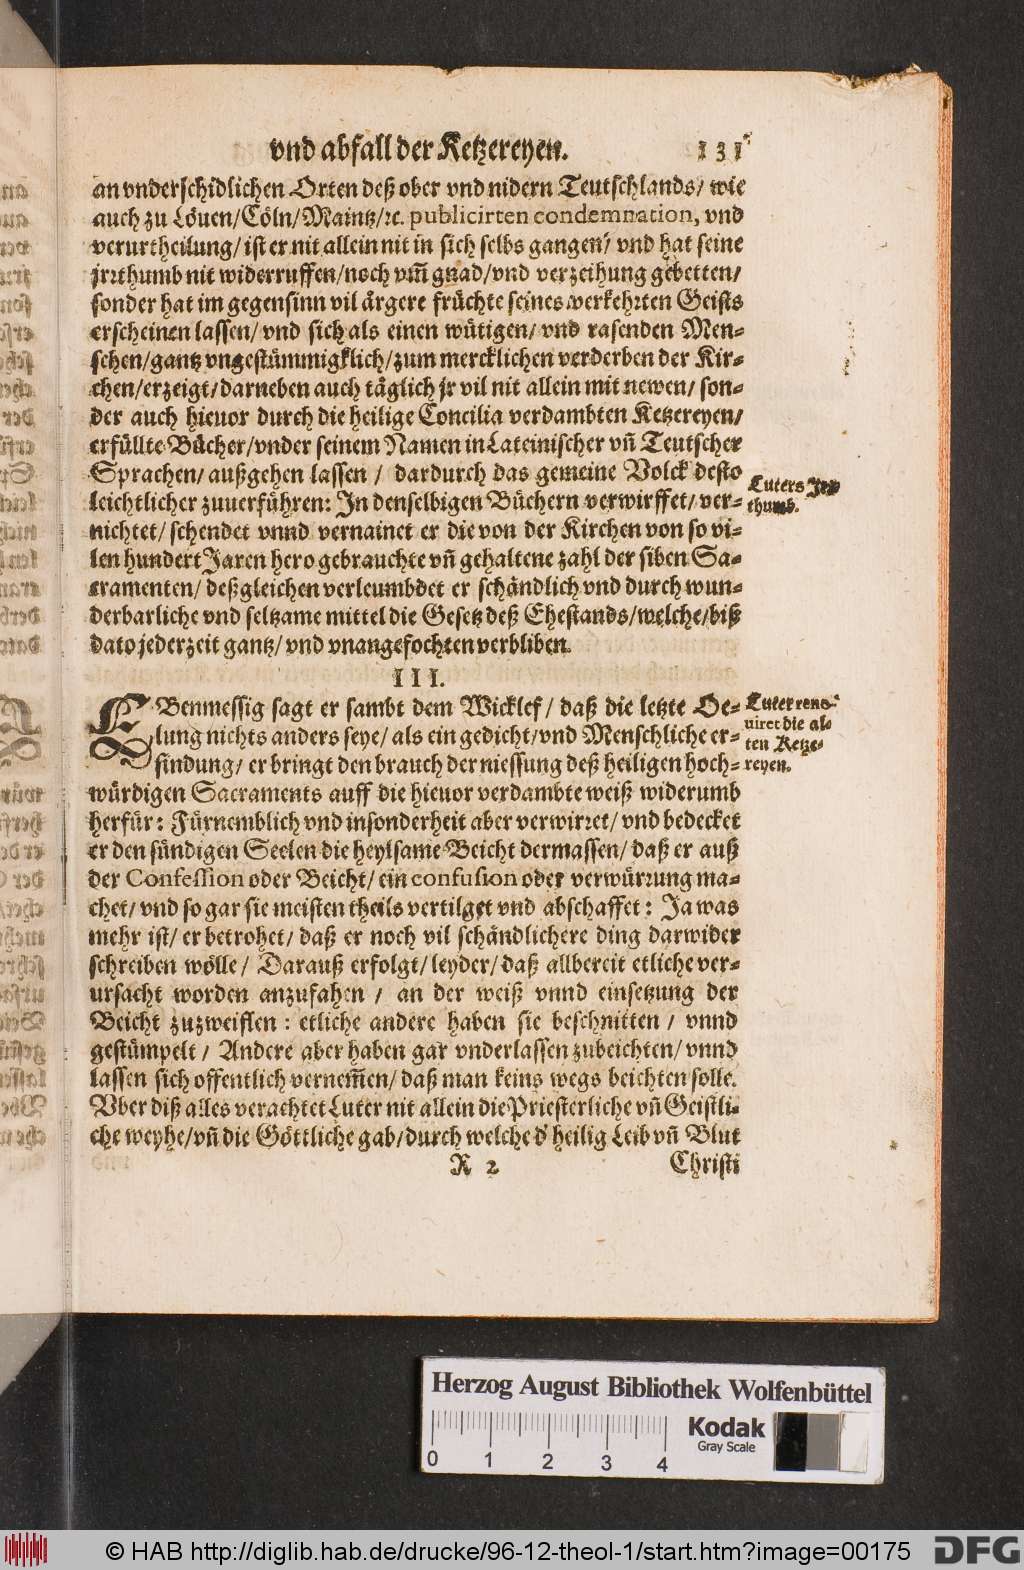 vnd abfall der Ketzereyen. 131
an vnderschidlichen Orten deß ober vnd nidern Teutschlands/ wie
auch zu Löuen/Cöln/Maintz/ꝛc. publicirten condemnation, vnd
verurtheilung/ ist er nit allein nit in sich selbs gangen/ vnd hat seine
jrꝛthumb nit widerruffen/noch vm̃ gnad/vnd verzeihung gebetten/
sonder hat im gegensinn vil ärgere früchte seines verkehrten Geists
erscheinen lassen/ vnd sich als einen wütigen/ vnd rasenden Men-
schen/gantz vngestümmigklich/zum mercklichen verderben der Kir-
chen/erzeigt/darneben auch täglich jr vil nit allein mit newen/ son-
der auch hieuor durch die heilige Concilia verdambten Ketzereyen/
erfüllte Bücher/vnder seinem Namen in Lateinischer vñ Teutscher
Sprachen/ außgehen lassen / dardurch das gemeine Volck desto
leichtlicher zuuerführen: In denselbigen Büchern verwirffet/ ver-
nichtet/ schendet vnnd vernainet er die von der Kirchen von so vi-
len hundert Jaren hero gebrauchte vñ gehaltene zahl der siben Sa-
cramenten/ deßgleichen verleumbdet er schändlich vnd durch wun-
derbarliche vnd seltzame mittel die Gesetz deß Ehestands/welche/biß
dato jederzeit gantz/ vnd vnangefochten verbliben.
Luters Jrꝛ-
thumb.
III.
EBenmessig sagt er sambt dem Wicklef/ daß die letzte Oe-
lung nichts anders seye/ als ein gedicht/vnd Menschliche er-
findung/ er bringt den brauch der niessung deß heiligen hoch-
würdigen Sacraments auff die hieuor verdambte weiß widerumb
herfür: Fürnemblich vnd insonderheit aber verwirꝛet/ vnd bedecket
er den sündigen Seelen die heylsame Beicht dermassen/ daß er auß
der Confession oder Beicht/ ein confusion oder verwürꝛung ma-
chet/ vnd so gar sie meisten theils vertilget vnd abschaffet: Ja was
mehr ist/ er betrohet/ daß er noch vil schändlichere ding darwider
schreiben wölle/ Darauß erfolgt/ leyder/ daß allbereit etliche ver-
ursacht worden anzufahen / an der weiß vnnd einsetzung der
Beicht zuzweiflen: etliche andere haben sie beschnitten / vnnd
gestümpelt/ Andere aber haben gar vnderlassen zubeichten/ vnnd
lassen sich offentlich vernem̃en/ daß man keins wegs beichten solle.
Vber diß alles verachtet Luter nit allein die Priesterliche vñ Geistli-
che weyhe/vñ die Göttliche gab/durch welche d' heilig Leib vñ Blut
Luter reno-
uiret die al-
ten Ketze-
reyen.
R 2 Christi
Herzog August Bibliothek Wolfenbüttel
0 1 2 3 4
Kodak
Gray Scale
© HAB http://diglib.hab.de/drucke/96-12-theol-1/start.htm?image=00175
DFG